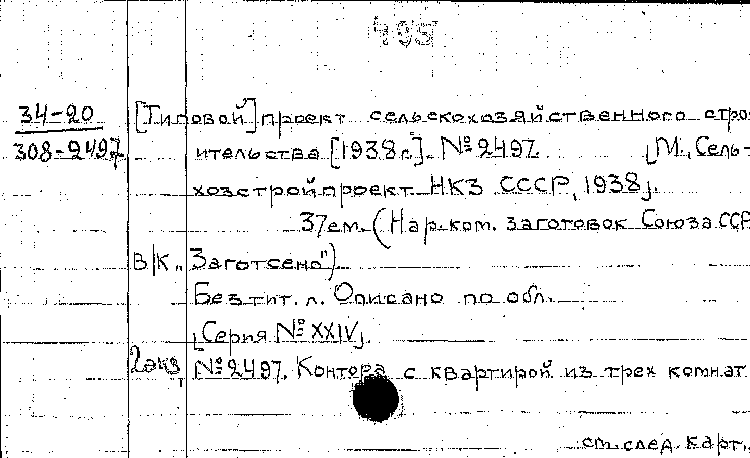 495
34-20
308-2497
[Типовой] проект сельскохозяйственного стро-
ительства [1938 г.]. № 2497. [М., Сель-
хозстройпроект НКЗ СССР, 1938].
37 ем. (Нар. ком. заготовок Союза ССР
В/К „Заготсено")
Без тит. л. Описано по обл.
[Серия № XXIV].
2 экз. № 2497. Контора с квартирой из трех комнат.
см. след. карт.